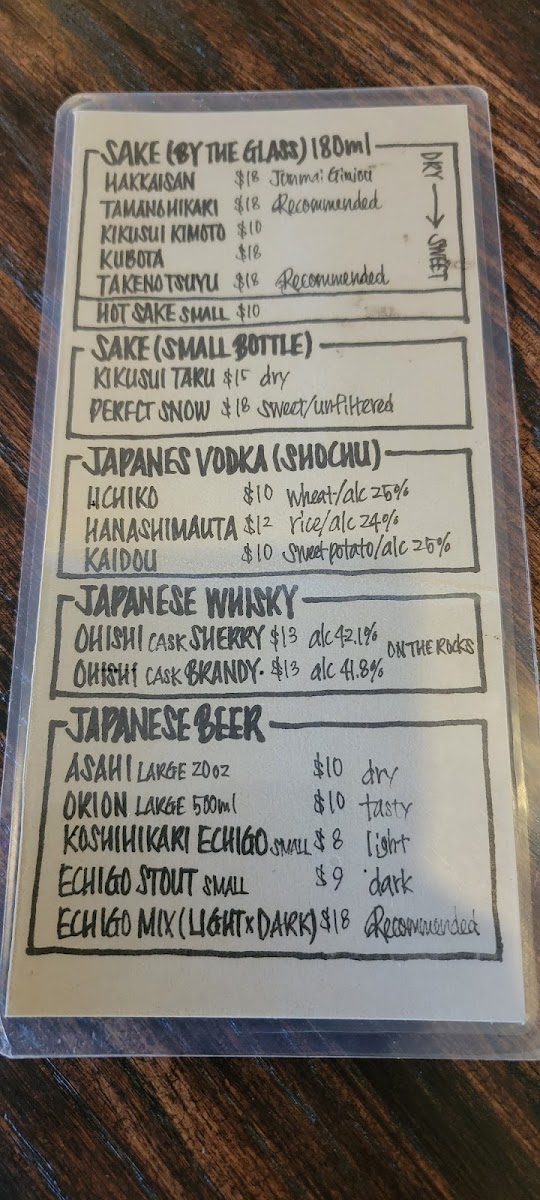 SAKE (BY THE GLASS) 180ml
HAKKAISAN $18 Junmai Ginjou
TAMANOHIKARI $18 Recommended
KIKUSUI KIMOTO $10
KUBOTA $18
TAKENOTSUYU $18 Recommended
DRY → SWEET
HOT SAKE SMALL $10
SAKE (SMALL BOTTLE)
KIKUSUI TARU $15 dry
PERFCT SNOW $18 sweet/unfiltered
JAPANES VODKA (SHOCHU)
IICHIKO $10 wheat/alc 25%
HANASHIMAUTA $12 rice/alc 24%
KAIDOU $10 sweetpotato/alc 25%
JAPANESE WHISKY
OHISHI CASK SHERRY $13 alc 42.1%
OHISHI CASK BRANDY. $13 alc 41.8%
ON THE ROCKS
JAPANESE BEER
ASAHI LARGE 20oz $10 dry
ORION LARGE 500ml $10 tasty
KOSHIHIKARI ECHIGO SMALL $8 light
ECHIGO STOUT SMALL $9 dark
ECHIGO MIX (LIGHT x DARK) $18 Recommended